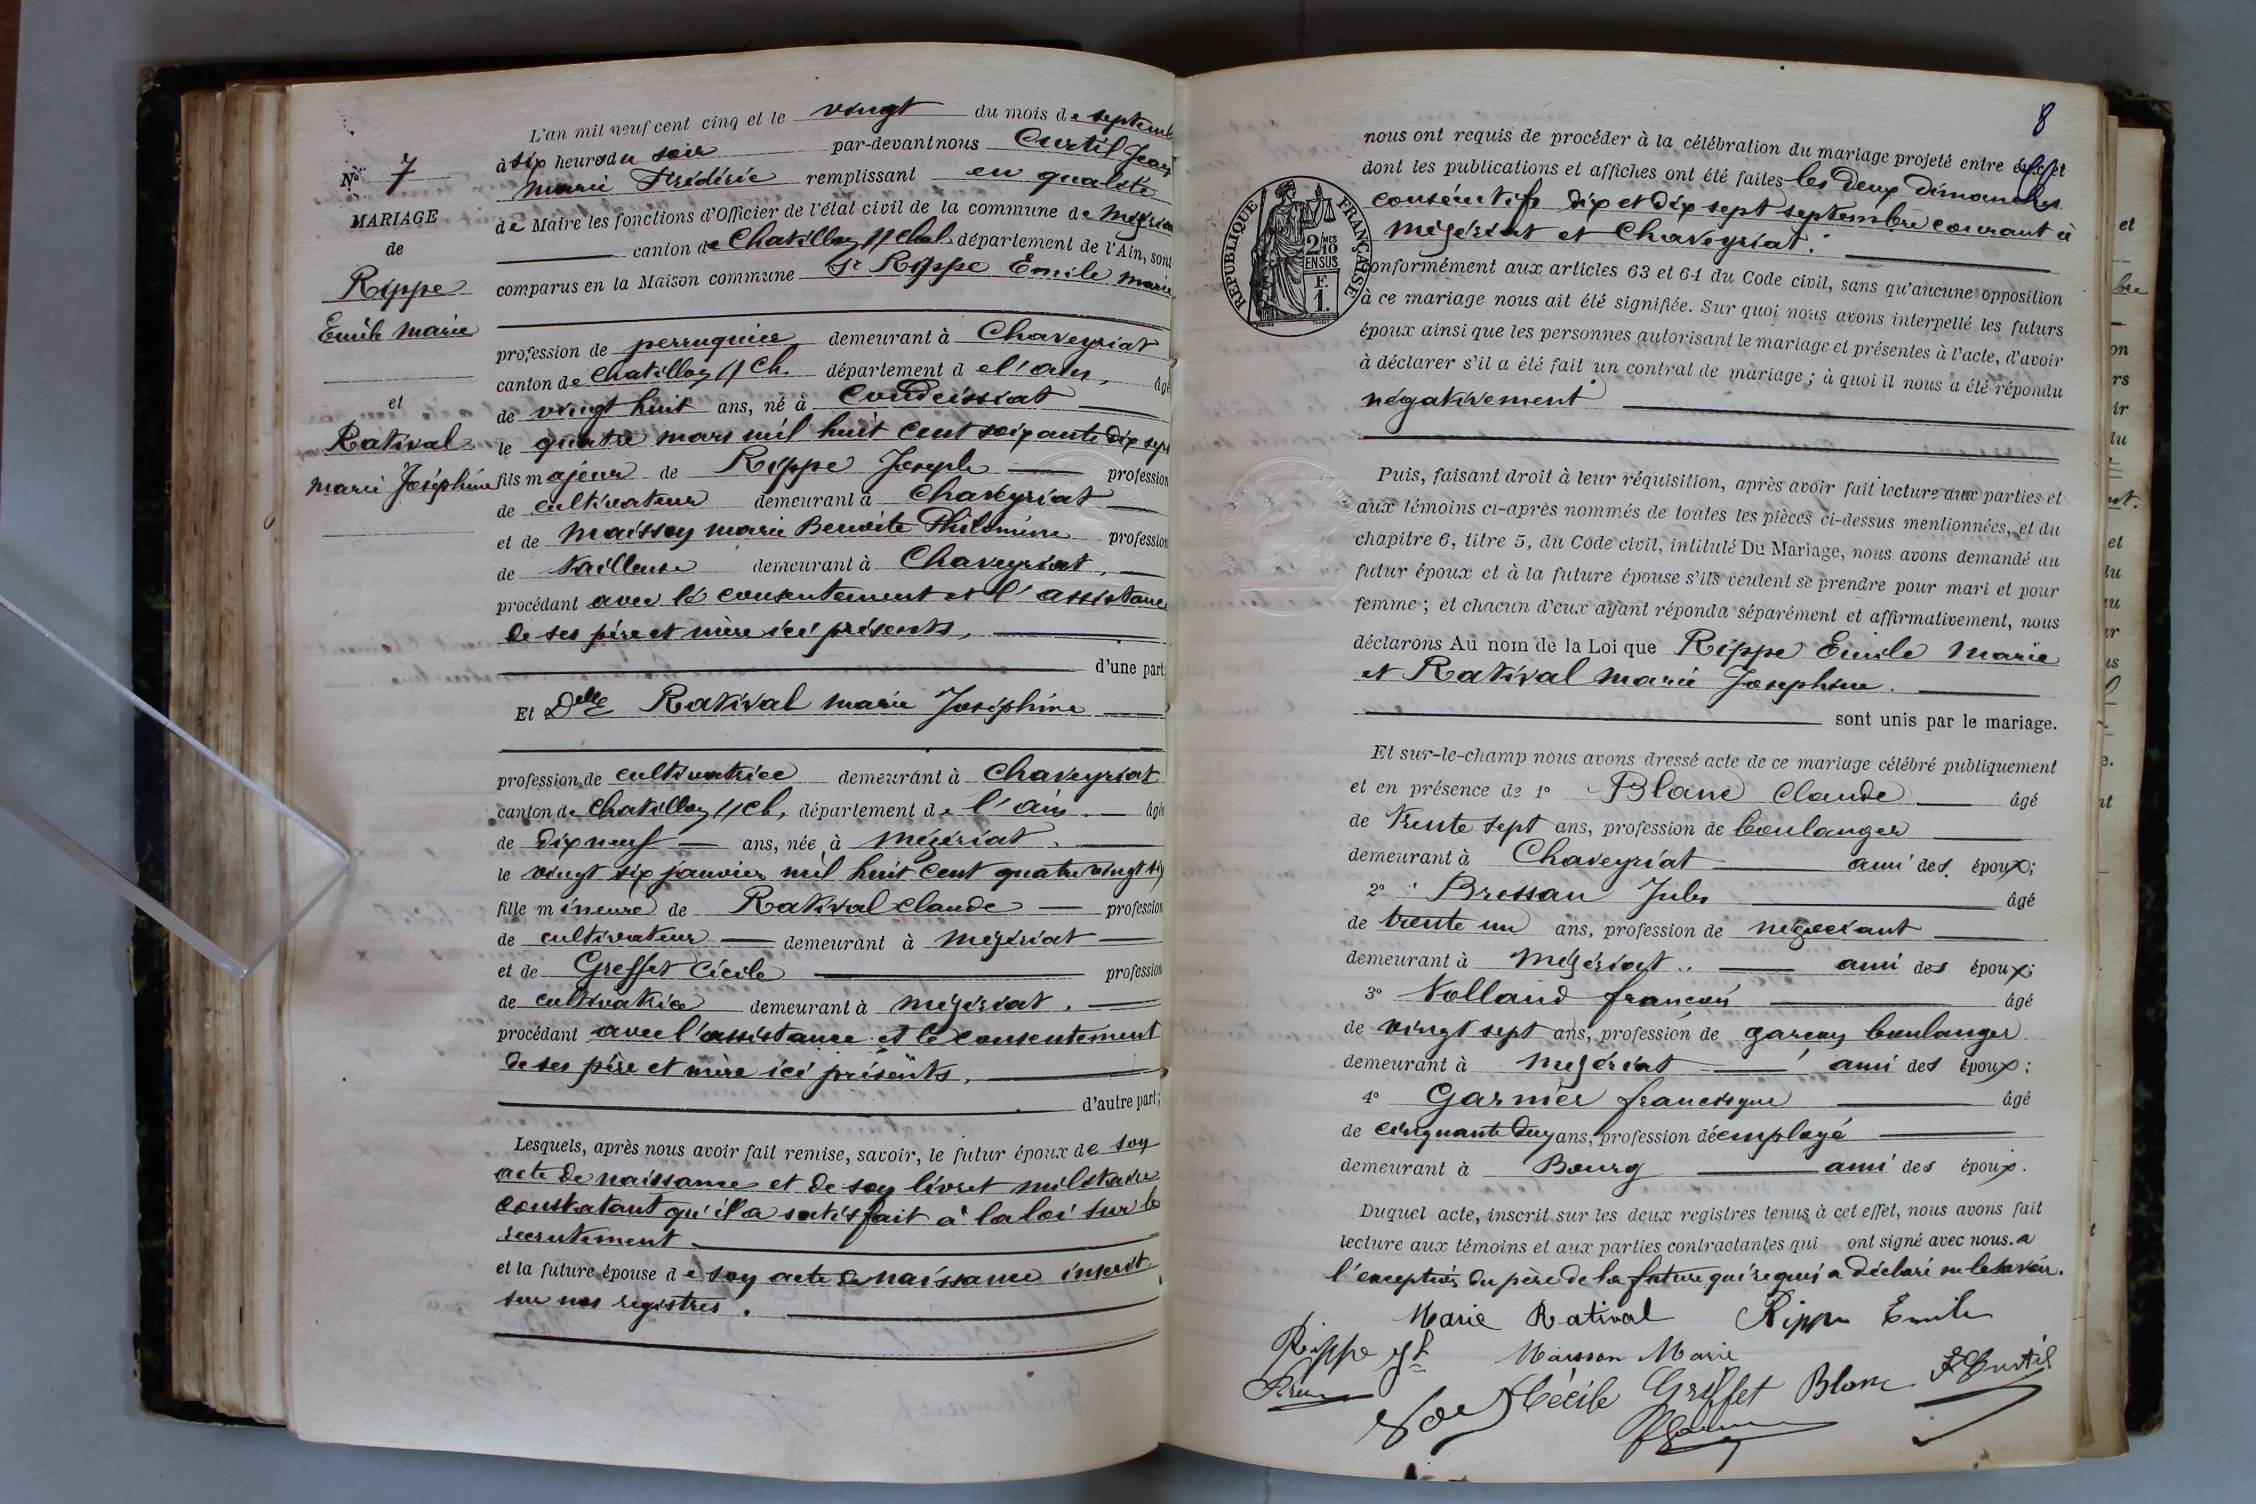 L'an mil neuf cent cinq et le vingt du mois de septemb
à six heures du soir par-devant nous Curtil Jean
Marie Frédéric remplissant en qualité
de Maire les fonctions d'Officier de l'état civil de la commune de Mézériat
canton de Chatillon s/ Chal. département de l'Ain, sont
comparus en la Maison commune Sr Rippe Emile Marie
N° 7
MARIAGE
de
Rippe
Emile Marie
et
Ratival
Marie Joséphine
profession de perruquier demeurant à Chaveyriat
canton de Chatillon s/ Ch. département d e l'ain, âgé
de vingt huit ans, né à Condeissiat
le quatre mars mil huit cent soixante dix sept
fils majeur de Rippe Joseph profession
de cultivateur demeurant à Chaveyriat
et de Maisson Marie Benoite Philomène profession
de tailleuse demeurant à Chaveyriat,
procédant avec le consentement et l'assistance
de ses père et mère ici présents,
d'une part;
Et Delle Ratival Marie Joséphine
profession de cultivatrice demeurant à Chaveyriat
canton de Chatillon s/ Ch, département de l'ain. âgée
de dix neuf ans, née à Mézériat.
le vingt six janvier mil huit cent quatre vingt six
fille mineure de Ratival Claude profession
de cultivateur demeurant à Mézériat
et de Greffet Cécile profession
de cultivatrice demeurant à Mézériat.
procédant avec l'assistance et le consentement
de ses père et mère ici présents,
d'autre part;
Lesquels, après nous avoir fait remise, savoir, le futur époux de son
acte de naissance et de son livret militaire
constatant qu'il a satisfait à la loi sur le
recrutement
et la future épouse de son acte de naissance inscrit
sur nos registres.
8
nous ont requis de procéder à la célébration du mariage projeté entre eux et
dont les publications et affiches ont été faites les deux dimanches
consécutifs dix et dix sept septembre courant à
Mézériat et Chaveyriat.
RÉPUBLIQUE FRANÇAISE
2/10MES
EN SUS
F.
1.
conformément aux articles 63 et 64 du Code civil, sans qu'aucune opposition
à ce mariage nous ait été signifiée. Sur quoi nous avons interpellé les futurs
époux ainsi que les personnes autorisant le mariage et présentes à l'acte, d'avoir
à déclarer s'il a été fait un contrat de mariage; à quoi il nous a été répondu
négativement
Puis, faisant droit à leur réquisition, après avoir fait lecture aux parties et
aux témoins ci-après nommés de toutes les pièces ci-dessus mentionnées, et du
chapitre 6, titre 5, du Code civil, intitulé Du Mariage, nous avons demandé au
futur époux et à la future épouse s'ils veulent se prendre pour mari et pour
femme; et chacun d'eux ayant répondu séparément et affirmativement, nous
déclarons Au nom de la Loi que Rippe Emile Marie
et Ratival Marie Josephine.
sont unis par le mariage.
Et sur-le-champ nous avons dressé acte de ce mariage célébré publiquement
et en présence de 1° Blanc Claude âgé
de trente sept ans, profession de boulanger
demeurant à Chaveyriat ami des époux;
2° Bressan Jules âgé
de trente un ans, profession de négociant
demeurant à Mézériat.. ami des époux;
3° Volland François âgé
de vingt sept ans, profession de garçon boulanger
demeurant à Mézériat ami des époux;
4° Garnier francisque âgé
de cinquante deux ans, profession de employé
demeurant à Bourg ami des époux.
Duquel acte, inscrit sur les deux registres tenus à cet effet, nous avons fait
lecture aux témoins et aux parties contractantes qui ont signé avec nous. a
l'exception du père de la future qui requis a déclaré ne le savoir.
Marie Ratival Rippe Emile
Rippe Jh Maisson Marie
Cécile Greffet Blanc F Curtil